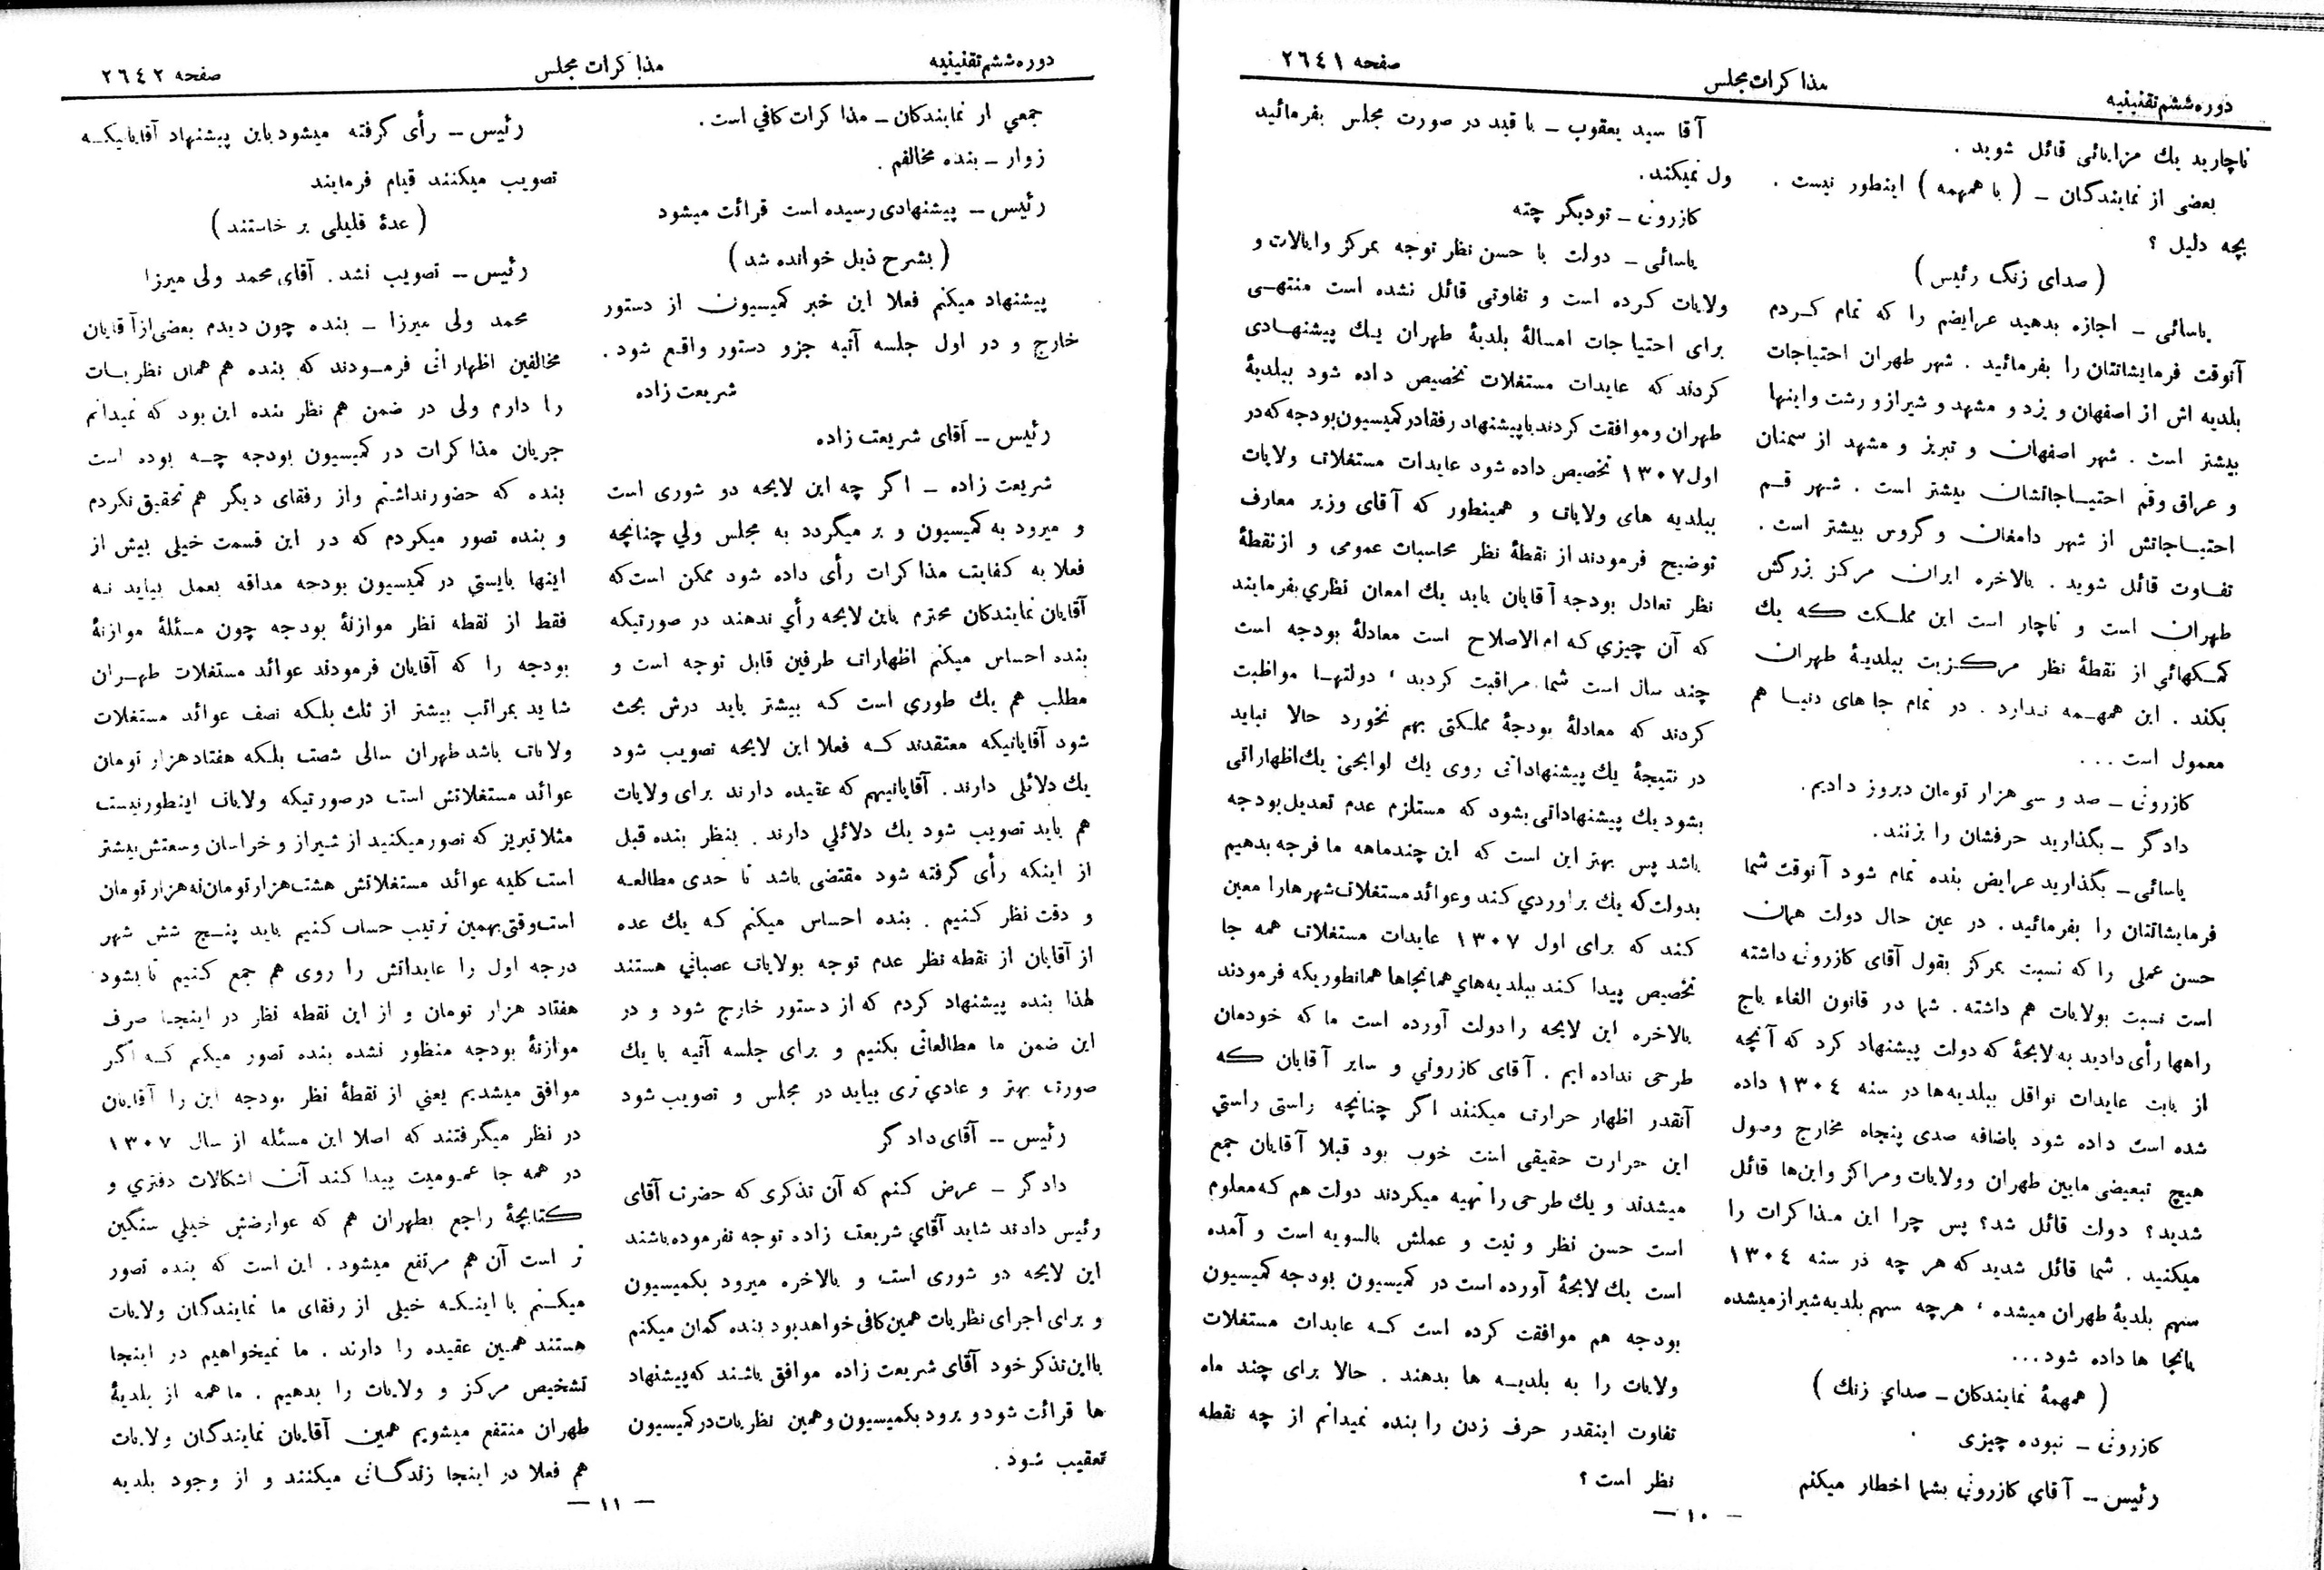 دوره ششم تقنینیه
مذاکرات مجلس
صفحه ٢٦٤١
ناچارید یك مزایائی قائل شوید .
بعضی از نمایندگان ـ ( با همهمه ) اینطور نیست .
بچه دلیل ؟
( صدای زنگ رئیس )
یاسائی ـ اجازه بدهید عرایضم را که تمام کردم
آنوقت فرمایشاتتان را بفرمائید . شهر طهران احتیاجات
بلدیه اش از اصفهان و یزد و مشهد و شیراز و رشت و اینها
بیشتر است . شهر اصفهان و تبریز و مشهد از سمنان
و عراق وقم احتیاجاتشان بیشتر است . شهر قم
احتیاجاتش از شهر دامغان و گروس بیشتر است .
تفاوت قائل شوید . بالاخره ایران مرکز بزرگش
طهران است و ناچار است این مملکت که یك
کمکهائی از نقطهٔ نظر مرکزیت ببلدیهٔ طهران
بکند . این همهمه ندارد . در تمام جا های دنیا هم
معمول است ...
کازرونی ـ صد و سی هزار تومان دیروز دادیم.
دادگر ـ بگذارید حرفشان را بزنند.
یاسائی ـ بگذارید عرایض بنده تمام شود آنوقت شما
فرمایشاتتان را بفرمائید . در عین حال دولت همان
حسن عملی را که نسبت بمرکز بقول آقای کازرونی داشته
است نسبت بولایات هم داشته. شما در قانون الغاء باج
راهها رأی دادید به لایحهٔ که دولت پیشنهاد کرد که آنچه
از بابت عایدات نواقل ببلدیه‌ها در سنه ١٣٠٤ داده
شده است داده شود باضافه صدی پنجاه مخارج وصول
هیچ تبعیضی مابین طهران وولایات ومراکز واین‌ها قائل
شدید؟ دولت قائل شد؟ پس چرا این مذاکرات را
میکنید . شما قائل شدید که هر چه در سنه ١٣٠٤
سهم بلدیهٔ طهران میشده ، هرچه سهم بلدیه شیراز میشده
بانجا ها داده شود...
( همهمهٔ نمایندکان ـ صدای زنك )
کازرونی ـ نبوده چیزی
رئیس ـ آقای کازرونی بشما اخطار میکنم
آقا سید یعقوب ـ با قید در صورت مجلس بفرمائید
ول نمیکند.
کازرونی ـ تودیگر چته
یاسائی ـ دولت با حسن نظر توجه بمرکز وایالات و
ولایات کرده است و تفاوتی قائل نشده است منتهی
برای احتیاجات امسالهٔ بلدیهٔ طهران یك پیشنهادی
کردند که عایدات مستغلات تخصیص داده شود ببلدیهٔ
طهران و موافقت کردند با پیشنهاد رفقا در کمیسیون بودجه که در
اول ١٣٠٧ تخصیص داده شود عایدات مستغلات ولایات
ببلدیه های ولایات و همینطور که آقای وزیر معارف
توضیح فرمودند از نقطهٔ نظر محاسبات عمومی و از نقطهٔ
نظر تعادل بودجه آقایان باید یك امعان نظري بفرمایند
که آن چیزي که ام الاصلاح است معادلهٔ بودجه است
چند سال است شما مراقبت کردید ، دولتها مواظبت
کردند که معادلهٔ بودجهٔ مملکتی بهم نخورد حالا نباید
در نتیجهٔ یك پیشنهاداتی روی یك لوایحی یك اظهاراتی
بشود یك پیشنهاداتی بشود که مستلزم عدم تعدیل بودجه
باشد پس بهتر این است که این چندماهه ما فرجه بدهیم
بدولت که یك براوردي کند و عوائد مستغلات شهرها را معین
کند که برای اول ١٣٠٧ عایدات مستغلات همه جا
تخصیص پیدا کند ببلدیه‌هاي همانجاها همانطوریکه فرمودند
بالاخره این لایحه را دولت آورده است ما که خودمان
طرحی نداده ایم . آقای کازرونی و سایر آقایان که
آنقدر اظهار حرارت میکنند اگر چنانچه راستی راستی
این حرارت حقیقی است خوب بود قبلا آقایان جمع
میشدند و یك طرحی را تهیه میکردند دولت هم که معلوم
است حسن نظر و نیت و عملش بالسویه است و آمده
است یك لایحهٔ آورده است در کمیسیون بودجه کمیسیون
بودجه هم موافقت کرده است که عایدات مستغلات
ولایات را به بلدیه ها بدهند . حالا برای چند ماه
تفاوت اینقدر حرف زدن را بنده نمیدانم از چه نقطه
نظر است ؟
ـ ١٠ ـ
دوره ششم تقنینیه
مذاکرات مجلس
صفحه ٢٦٤٢
جمعي از نمایندکان ـ مذاکرات کافي است.
زوار ـ بنده مخالفم .
رئیس ـ پیشنهادی رسیده است قرائت میشود
( بشرح ذیل خوانده شد )
پیشنهاد میکنم فعلا این خبر کمیسیون از دستور
خارج و در اول جلسه آتیه جزو دستور واقع شود .
شریعت زاده
رئیس ـ آقای شریعت زاده
شریعت زاده ـ اکر چه این لایحه دو شوری است
و میرود به کمیسیون و بر میگردد به مجلس ولي چنانچه
فعلا به کفایت مذاکرات رأی داده شود ممکن است که
آقایان نمایندکان محترم باین لایحه رأي ندهند در صورتیکه
بنده احساس میکنم اظهارات طرفین قابل توجه است و
مطلب هم یك طوري است که بیشتر باید درش بحث
شود آقایانیکه معتقدند که فعلا این لایحه تصویب شود
یك دلائلی دارند . آقایانیهم که عقیده دارند برای ولایات
هم باید تصویب شود یك دلائلي دارند . بنظر بنده قبل
از اینکه رأی گرفته شود مقتضی باشد تا حدی مطالعه
و دقت نظر کنیم . بنده احساس میکنم که یك عده
از آقایان از نقطه نظر عدم توجه بولایات عصبانی هستند
لهذا بنده پیشنهاد کردم که از دستور خارج شود و در
این ضمن ما مطالعاتی بکنیم و برای جلسه آتیه با یك
صورت بهتر و عادي تری بیاید در مجلس و تصویب شود
رئیس ـ آقای دادگر
دادگر ـ عرض کنم که آن تذکری که حضرت آقای
رئیس دادند شاید آقاي شریعت زاده توجه نفرموده باشند
این لایحه دو شوری است و بالاخره میرود بکمیسیون
و برای اجرای نظریات همین کافی خواهد بود بنده گمان میکنم
با این تذکر خود آقای شریعت زاده موافق باشند که پیشنهاد
ها قرائت شود و برود بکمیسیون و همین نظریات در کمیسیون
تعقیب شود .
رئیس ـ رأی گرفته میشود باین پیشنهاد آقایانیکه
تصویب میکنند قیام فرمایند
( عدهٔ قلیلی بر خاستند )
رئیس ـ تصویب نشد . آقای محمد ولی میرزا
محمد ولی میرزا ـ بنده چون دیدم بعضی از آقایان
مخالفین اظهاراتی فرمودند که بنده هم همان نظریات
را دارم ولی در ضمن هم نظر بنده این بود که نمیدانم
جریان مذاکرات در کمیسیون بودجه چه بوده است
بنده که حضور نداشتم واز رفقای دیگر هم تحقیق نکردم
و بنده تصور میکردم که در این قسمت خیلی بیش از
اینها بایستي در کمیسیون بودجه مداقه بعمل بیاید نه
فقط از نقطه نظر موازنهٔ بودجه چون مسئلهٔ موازنهٔ
بودجه را که آقایان فرمودند عوائد مستغلات طهران
شاید بمراتب بیشتر از ثلث بلکه نصف عوائد مستغلات
ولایات باشد طهران سالی شصت بلکه هفتاد هزار تومان
عوائد مستغلاتش است در صورتیکه ولایات اینطور نیست
مثلا تبریز که تصور میکنید از شیراز و خراسان وسعتش بیشتر
است کلیه عوائد مستغلاتش هشت هزار تومان نه هزار تومان
است وقتی بهمین ترتیب حساب کنیم باید پنج شش شهر
درجه اول را عایداتش را روی هم جمع کنیم تا بشود
هفتاد هزار تومان و از این نقطه نظر در اینجا صرف
موازنهٔ بودجه منظور نشده بنده تصور میکنم که اگر
موافق میشدیم یعني از نقطهٔ نظر بودجه این را آقایان
در نظر میگرفتند که اصلا این مسئله از سال ١٣٠٧
در همه جا عمومیت پیدا کند آن اشکالات دفتري و
کتابچهٔ راجع بطهران هم که عوارضش خیلي سنگین
تر است آن هم مرتفع میشود . این است که بنده تصور
میکنم با اینکه خیلی از رفقای ما نمایندکان ولایات
هستند همین عقیده را دارند . ما نمیخواهیم در اینجا
تشخیص مرکز و ولایات را بدهیم . ما همه از بلدیهٔ
طهران منتفع میشویم همین آقایان نمایندکان ولایات
هم فعلا در اینجا زندگانی میکنند و از وجود بلدیه
ـ ١١ ـ